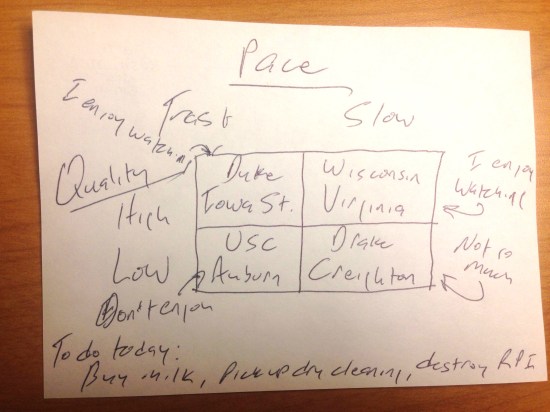 Pace
Fast Slow
I enjoy watching
Quality
High
Low
Duke
Iowa St.
Wisconsin
Virginia
USC
Auburn
Drake
Creighton
I enjoy
watching
Not so
much
Don't enjoy
To do today:
Buy milk, Pick up dry cleaning, destroy RPI